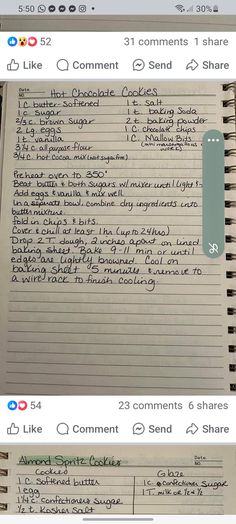 5:50
30%
52
31 comments 1 share
Like Comment Send Share
Date
No
Hot Chocolate Cookies
1 C. butter-softened 1 t. salt
1 c. sugar 1 t. baking soda
2/3 c. brown sugar 2 t. baking powder
2 lg. eggs 1 C. chocolate chips
1 t. vanilla 1 C. Mallow Bits
3 1/4 c. all purpose flour
3/4 c. hot cocoa mix (not sugar free)
Preheat oven to 350°
Beat butter & both sugars w/ mixer until light &
Add eggs & vanilla & mix well.
In a separate bowl, combine dry ingredients into
butter mixture.
Fold in chips & bits.
Cover & chill at least 1 hr (up to 24 hrs)
Drop 2 T. dough, 2 inches apart on lined
baking sheet. Bake 9-11 min or until
edges are lightly browned. Cool on
baking sheet 5 minutes & remove to
a wire rack to finish cooling.
54
23 comments 6 shares
Like Comment Send Share
Almond Spritz Cookies
Date
No
Cookies Glaze
1 C. softened butter 1 c. confectioners sugar
1 egg 1 T. milk or 1/2 & 1/2
1 1/4 c confectioners sugar
1/2 t. Kosher salt